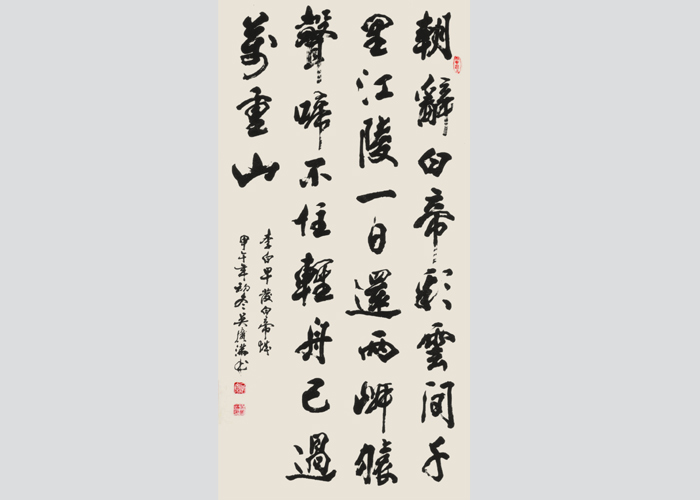 朝辭白帝彩雲間千
里江陵一日還兩岸猿
聲啼不住輕舟已過
萬重山
李白早發白帝城
甲午年初冬吳